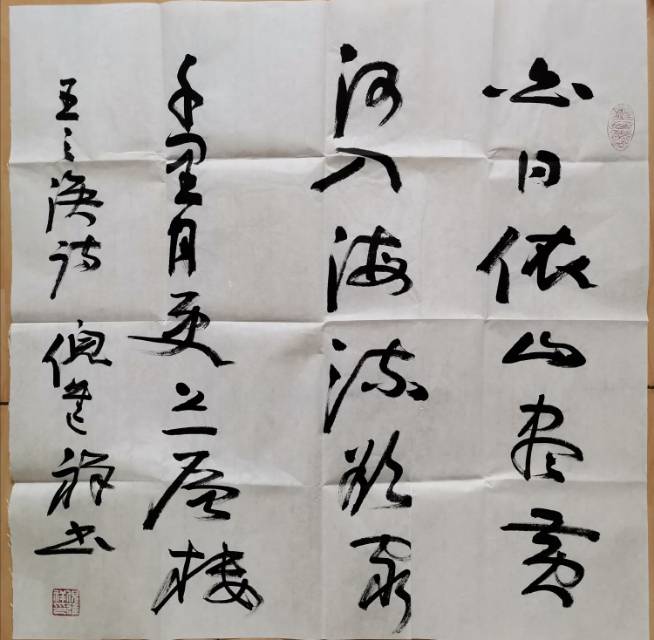 白日依山尽黄
河入海流欲穷
千里目更上一层楼
王之涣诗 倪 祥书